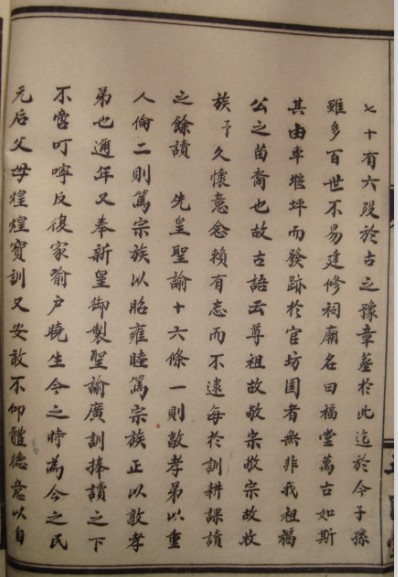 七十有六歿於古之豫章塟於此迄於今子孫
雖多百世不易建修祠廟名曰福堂萬古如斯
其由車堰坪而發跡於官坊圍者無非我祖禍
公之苗裔也故古語云尊祖故敬宗敬宗故收
族予久懷意念賴有志而不逮每於訓耕課讀
之餘讀 先皇聖諭十六條一則敦孝弟以重
人倫二則篤宗族以昭雍睦篤宗族正以敦孝
弟也邇年又奉新皇御製聖諭廣訓捧讀之下
不啻叮嚀反復家喻户曉生今之時為今之民
元后父母煌煌寶訓又安敢不仰體德意以自